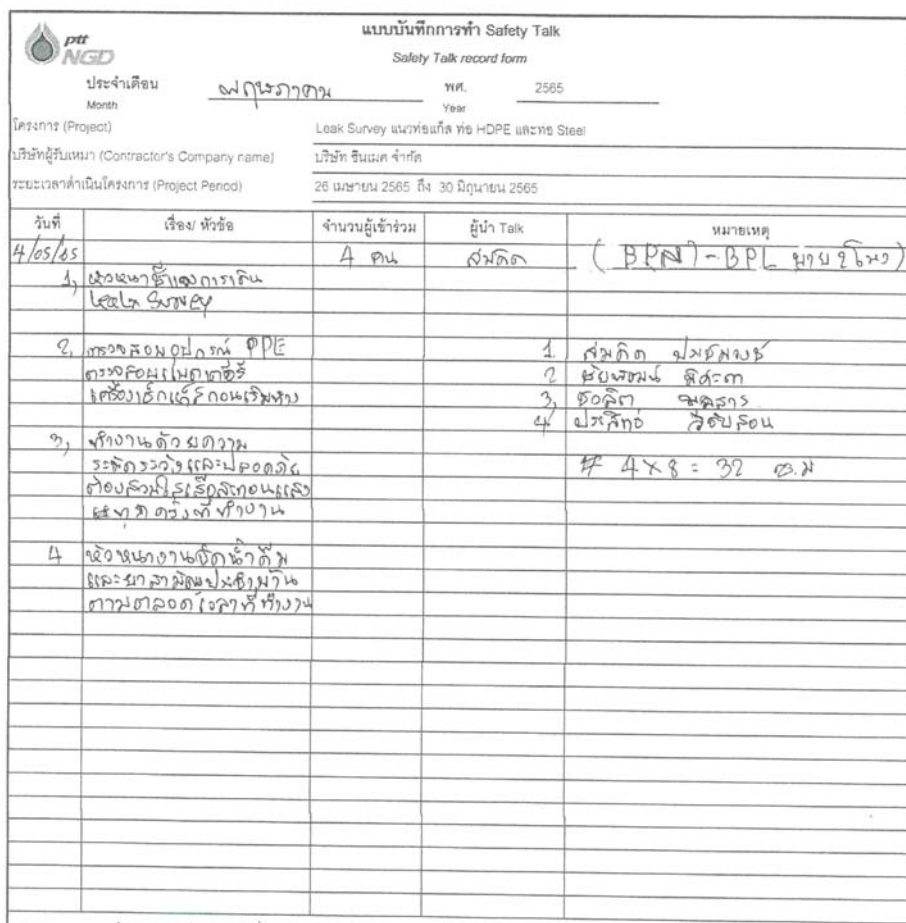 ptt
NGD
แบบบันทึกการทำ Safety Talk
Safety Talk record form
ประจำเดือน พฤษภาคม พศ. 2565
Month Year
โครงการ (Project) Leak Survey แนวท่อแก๊ส ท่อ HDPE และท่อ Steel
บริษัทผู้รับเหมา (Contractor's Company name) บริษัท ชินเมค จำกัด
ระยะเวลาดำเนินโครงการ (Project Period) 26 เมษายน 2565 ถึง 30 มิถุนายน 2565
วันที่ เรื่อง/ หัวข้อ จำนวนผู้เข้าร่วม ผู้นำ Talk หมายเหตุ
4/05/65 4 คน สมคิด - BPL
1, หัวหน้าชี้แจงการเดิน
Leak Survey
2, ตรวจสอบอุปกรณ์ PPE 1. สมคิด
ตรวจสอบแบตเตอรี่ 2
เครื่องเช็คแก๊สก่อนเริ่มงาน 3,
3, ทำงานด้วยความ 4 ประสิทธิ์
ระมัดระวังและปลอดภัย # 4 x 8 = 32 ช.ม
ต้องสวมใส่เสื้อสะท้อนแสง
ทุกครั้งที่ทำงาน
4 หัวหน้างานจัดน้ำดื่ม
และยาสามัญประจำบ้าน
ตามตลอดเวลาที่ทำงาน